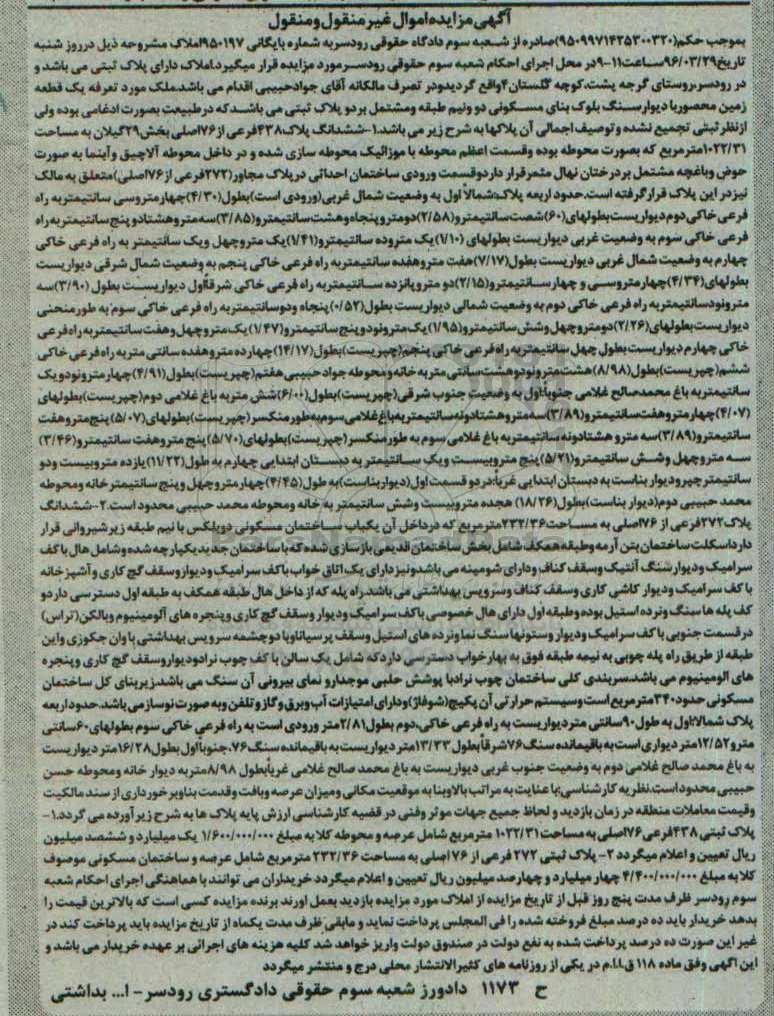 آگهی مزایده اموال غیر منقول و منقول
بموجب حکم(۹۵۰۹۹۷۱۴۲۵۳۰۰۳۲۰)صادره از شعبه سوم دادگاه حقوقی رودسر به شماره بایگانی ۹۵۰۱۹۷املاک مشروحه ذیل درروز شنبه
تاریخ۹۶/۰۳/۲۹ساعت۱۱-۹در محل اجرای احکام شعبه سوم حقوقی رودسر مورد مزایده قرار میگیرد.املاک دارای پلاک ثبتی می باشد و
در رودسر،روستای گرجه پشت،کوچه گلستان۴واقع گردیدودر تصرف مالکانه آقای جوادحبیبی اقدام می باشد.ملک مورد تعرفه یک قطعه
زمین محصوربا دیوارسنگ بلوک بنای مسکونی دو ونیم طبقه ومشتمل بردو پلاک ثبتی می باشدکه درطبیعت بصورت ادغامی بوده ولی
ازنظر ثبتی تجمیع نشده وتوصیف اجمالی آن پلاکها به شرح زیر می باشد.۱-ششدانگ پلاک۴۳۸فرعی از۷۶اصلی بخش۲۹گیلان به مساحت
۱۰۲۲/۳۱مترمربع که بصورت محوطه بوده وقسمت اعظم محوطه با موزائیک محوطه سازی شده و در داخل محوطه آلاچیق وآبنما به صورت
حوض وباغچه مشتمل بردرختان نهال مثمرقرار داردوقسمت ورودی ساختمان احداثی درپلاک مجاور(۲۷۲فرعی از۷۶اصلی)متعلق به مالک
نیزدر این پلاک قرارگرفته است.حدود اربعه پلاک:شمالا اول به وضعیت شمال غربی(ورودی است)بطول(۴/۳۰)چهارمتروسی سانتیمتربه راه
فرعی خاکی دوم دیواریست بطولهای(۶۰)شصت سانتیمترو(۲/۵۸)دومتروپنجاه وهشت سانتیمترو(۳/۸۵)سه متروهشتادوپنج سانتیمتربه راه
فرعی خاکی سوم به وضعیت غربی دیواریست بطولهای (۱/۱۰)یک متروده سانتیمترو(۱/۴۱)یک متروچهل ویک سانتیمتر به راه فرعی خاکی
چهارم به وضعیت شمال غربی دیواریست بطول(۷/۱۷)هفت متروهفده سانتیمتربه راه فرعی خاکی پنجم به وضعیت شمال شرقی دیواریست
بطولهای(۴/۳۴)چهارمتروسی و چهارسانتیمترو(۲/۱۵)دو متروپانزده سانتیمتربه راه فرعی خاکی شرقااول دیواریست بطول (۳/۹۰)سه
مترونودسانتیمتربه راه فرعی خاکی دوم به وضعیت شمالی دیواریست بطول(۰/۵۲) پنجاه ودوسانتیمتربه راه فرعی خاکی سوم به طورمنحنی
دیواریست بطولهای(۲/۴۶)دومتروچهل وشش سانتیمترو(۱/۹۵)یک مترونودوپنج سانتیمترو(۱/۴۷) یک متروچهل وهفت سانتیمتربه راه فرعی
خاکی چهارم دیواریست بطول چهل سانتیمتربه راه فرعی خاکی پنجم(چپریست)بطول(۱۴/۱۷)چهارده متروهفده سانتی متربه راه فرعی خاکی
ششم(چپریست)بطول(۸/۹۸)هشت مترونودوهشت سانتی متربه خانه ومحوطه جواد حبیبی هفتم(چپریست)بطول(۴/۹۱)چهارمترونودویک
سانتیمتربه باغ محمدصالح غلامی جنوبا:اول به وضعیت جنوب شرقی(چپریست)بطول(۶/۰۰)شش متربه باغ غلامی دوم(چپریست)بطولهای
(۴/۰۷)چهارمتروهفت سانتیمترو(۳/۸۹)سه متروهشتادونه سانتیمتربه باغ غلامی سوم به طورمنکسر(چپریست)بطولهای(۵/۰۷)پنج متروهفت
سانتیمترو(۳/۸۹)سه مترو هشتادونه سانتیمتربه باغ غلامی سوم به طورمنکسر(چپریست)بطولهای(۵/۷۰) پنج متروهفت سانتیمترو(۳/۴۶)
سه متروچهل وشش سانتیمترو(۵/۲۱)پنج متروبیست ویک سانتیمتر به دبستان ابتدایی چهارم به طول(۱۱/۲۲) یازده متروبیست ودو
سانتیمترچپرودیوار بناست به دبستان ابتدایی غربا:دردو قسمت اول(دیواربناست)به طول(۴/۴۵)چهارمتروچهل وپنج سانتیمترخانه ومحوطه
محمد حبیبی دوم(دیوار بناست)بطول(۱۸/۲۶) هجده متروبیست وشش سانتیمتر به خانه ومحوطه محمد حبیبی محدود است.۲-ششدانگ
پلاک۲۷۲فرعی از ۷۶اصلی به مساحت۲۳۲/۳۶مترمربع که درداخل آن یکباب ساختمان مسکونی دوپلکس با نیم طبقه زیرشیروانی قرار
دارداسکلت ساختمان بتن آرمه وطبقه همکف شامل بخش ساختمان قدیمی بازسازی شده که با ساختمان جدید یکپارچه شده وشامل هال باکف
سرامیک ودیوارسنگ آنتیک وسقف کناف ودارای شومینه می باشدونیز دارای یک اتاق خواب باکف سرامیک ودیواروسقف گچ کاری وآشپزخانه
با کف سرامیک ودیوار کاشی کاری وسقف کناف وسرویس بهداشتی می باشد.راه پله که از داخل هال طبقه همکف به طبقه اول دسترسی داردو
کف پله ها سنگ ونرده استیل بوده وطبقه اول دارای هال خصوصی باکف سرامیک ودیوار وسقف گچ کاری وپنجره های آلومینیوم وبالکن(تراس)
درقسمت جنوبی با کف سرامیک ودیوار وستونها سنگ نماونرده های استیل وسقف پرسیاناوبا دوچشمه سرویس بهداشتی با وان جکوزی واین
طبقه از طریق راه پله چوبی به نیمه طبقه فوق به بهارخواب دسترسی داردکه شامل یک سالن با کف چوب نرادودیواروسقف گچ کاری وپنجره
های الومینیوم می باشد.سربندی کلی ساختمان چوب نرادبا پوشش حلبی موجدارو نمای بیرونی آن سنگ می باشد.زیربنای کل ساختمان
مسکونی حدود۳۴۰مترمربع است وسیستم حرارتی آن پکیج(شوفاژ)ودارای امتیازات آب وبرق وگازو تلفن وبه صورت نوساز می باشد.حدوداربعه
پلاک شمالا:اول به طول۹۰سانتی متردیواریست به راه فرعی خاکی،دوم بطول۲/۸۱متر ورودی است به راه فرعی خاکی سوم بطولهای۶۰سانتی
مترو۱۲/۵۲متر دیواری است به باقیمانده سنگ۷۶شرقابطول۱۳/۲۳متر دیواریست به باقیمانده سنگ۷۶.جنوبااول بطول۱۶/۲۸متر دیواریست
به باغ محمد صالح غلامی دوم به وضعیت جنوب غربی دیواریست به باغ محمد صالح غلامی غربابطول ۸/۹۸متر به دیوار خانه ومحوطه حسن
حبیبی محدود است.نظریه کارشناسی:با عنایت به مراتب بالا وبنا به موقعیت مکانی ومیزان عرصه وبافت وقدمت بناوبرخورداری از سند مالکیت
وقیمت معاملات منطقه در زمان بازدید و لحاظ جمیع جهات موثر وفنی در قضیه کارشناسی ارزش پایه پلاک ها به شرح زیرآورده می گردد.۱-
پلاک ثبتی ۴۳۸فرعی ۷۶اصلی به مساحت ۱۰۲۲/۳۱ مترمربع شامل عرصه و محوطه کلا به مبلغ ۱/۶۰۰/۰۰۰/۰۰۰ یک میلیارد و ششصد میلیون
ریال تعیین و اعلام میگردد ۲- پلاک ثبتی ۲۷۲ فرعی از ۷۶ اصلی به مساحت ۲۳۲/۳۶ مترمربع شامل عرصه و ساختمان مسکونی موصوف
کلا به مبلغ ۴/۴۰۰/۰۰۰/۰۰۰ چهار میلیارد و چهارصد میلیون ریال تعیین و اعلام میگردد خریداران می توانند با هماهنگی اجرای احکام شعبه
سوم رودسر ظرف مدت پنج روز قبل از تاریخ مزایده از املاک مورد مزایده بازدید بعمل اورند برنده مزایده کسی است که بالاترین قیمت را
بدهد خریدار باید ده درصد مبلغ فروخته شده را فی المجلس پرداخت نماید و مابقی ظرف مدت یکماه از تاریخ مزایده باید پرداخت کند در
غیر این صورت ده درصد پرداخت شده به نفع دولت در صندوق دولت واریز خواهد شد کلیه هزینه های اجرائی بر عهده خریدار می باشد و
این اگهی وفق ماده ۱۱۸ ق.ا.ا.م در یکی از روزنامه های کثیرالانتشار محلی درج و منتشر میگردد
ح ۱۱۷۳ دادورز شعبه سوم حقوقی دادگستری رودسر - ا... بداشتی